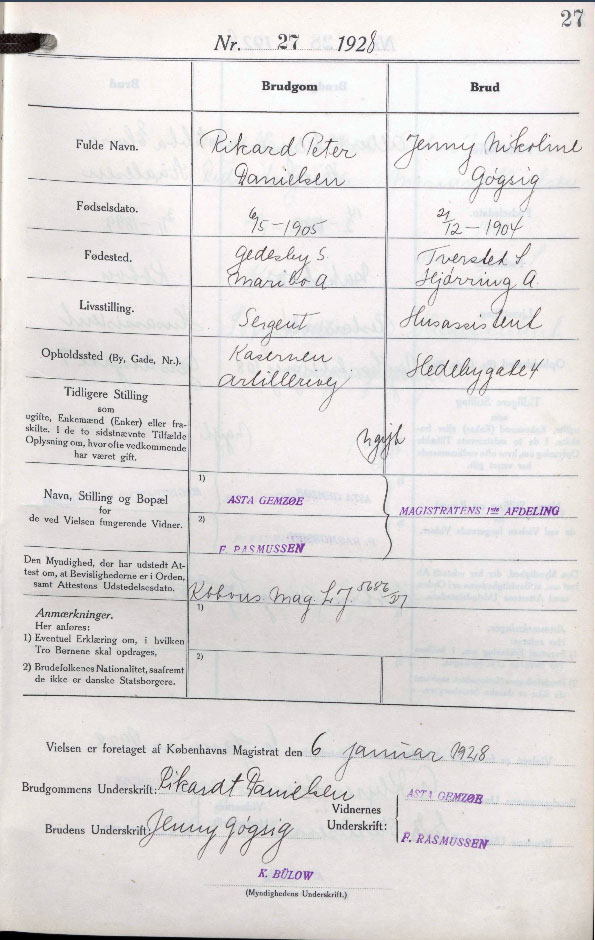 27
Nr. 27 1928
Brudgom
Brud
Fulde Navn.
Rikard Peter
Danielsen
Jenny Nikoline
Gøgsig
Fødselsdato.
6/5 - 1905
21/12 - 1904
Fødested.
Gedesby S.
Maribo A
Tversted S
Hjørring A.
Livsstilling.
Sergent
Husassistent
Opholdssted (By, Gade, Nr.).
Kasernen
Artillerivej
Hedebygade 4
Tidligere Stilling
som
ugifte, Enkemænd (Enker) eller fra-
skilte. I de to sidstnævnte Tilfælde
Oplysning om, hvor ofte vedkommende
har været gift.
Ugift
Navn, Stilling og Bopæl
for
de ved Vielsen fungerende Vidner.
1)
ASTA GEMZØE
2)
F. RASMUSSEN
MAGISTRATENS 1ste AFDELING
Den Myndighed, der har udstedt At-
test om, at Bevislighederne er i Orden,
samt Attestens Udstedelsesdato.
Kbhvns Mag. L.J. 5686/27
Anmærkninger.
Her anføres:
1) Eventuel Erklæring om, i hvilken
Tro Børnene skal opdrages,
2) Brudefolkenes Nationalitet, saafremt
de ikke er danske Statsborgere.
1)
2)
Vielsen er foretaget af Københavns Magistrat den 6 januar 1928
Brudgommens Underskrift: Rikardt Danielsen
Brudens Underskrift: Jenny Gøgsig
Vidnernes
Underskrift:
ASTA GEMZØE
F. RASMUSSEN
K. BÜLOW
(Myndighedens Underskrift.)